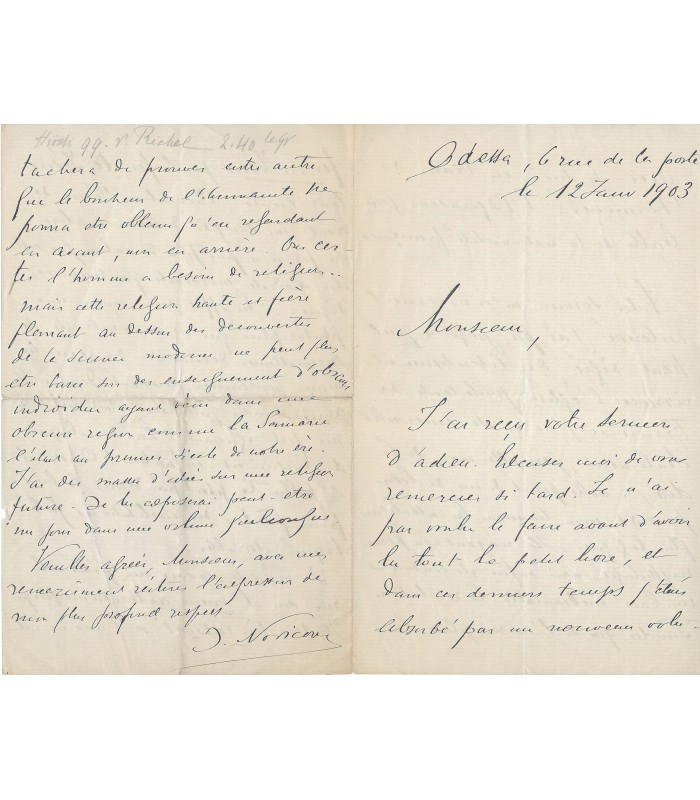 Odessa, 6 rue de la poste
le 12 Janv 1903
Monsieur,
J'ai reçu votre sermon
d'adieu. Excusez moi de vous
remercier si tard. Je n'ai
pas voulu le faire avant d'avoir
lu tout le petit livre, et
dans ces derniers temps j'étais
absorbé par un nouveau volu-
99. r Richel 2.40
tachera de prouver entre autre
que le bonheur de l'humanité ne
pourra etre obtenu qu'en regardant
en avant, non en arrière. Oui cer-
tes l'homme a besoin de religion..
mais cette religion haute et fière
planant au dessus des decouvertes
de la science moderne ne peut plus
etre basée sur des enseignement d'obscurs
individus ayant vécu dans une
obscure region comme la Samarie
l'était au premier siecle de notre ère.
J'ai des masses d'idées sur une religion
future. Je les exposerai peut-etre
un jour dans une volume quelconque.
Veuillez agréer, Monsieur, avec mes
remerciement réiterés l'expression de
mon plus profond respect
J. Novicow